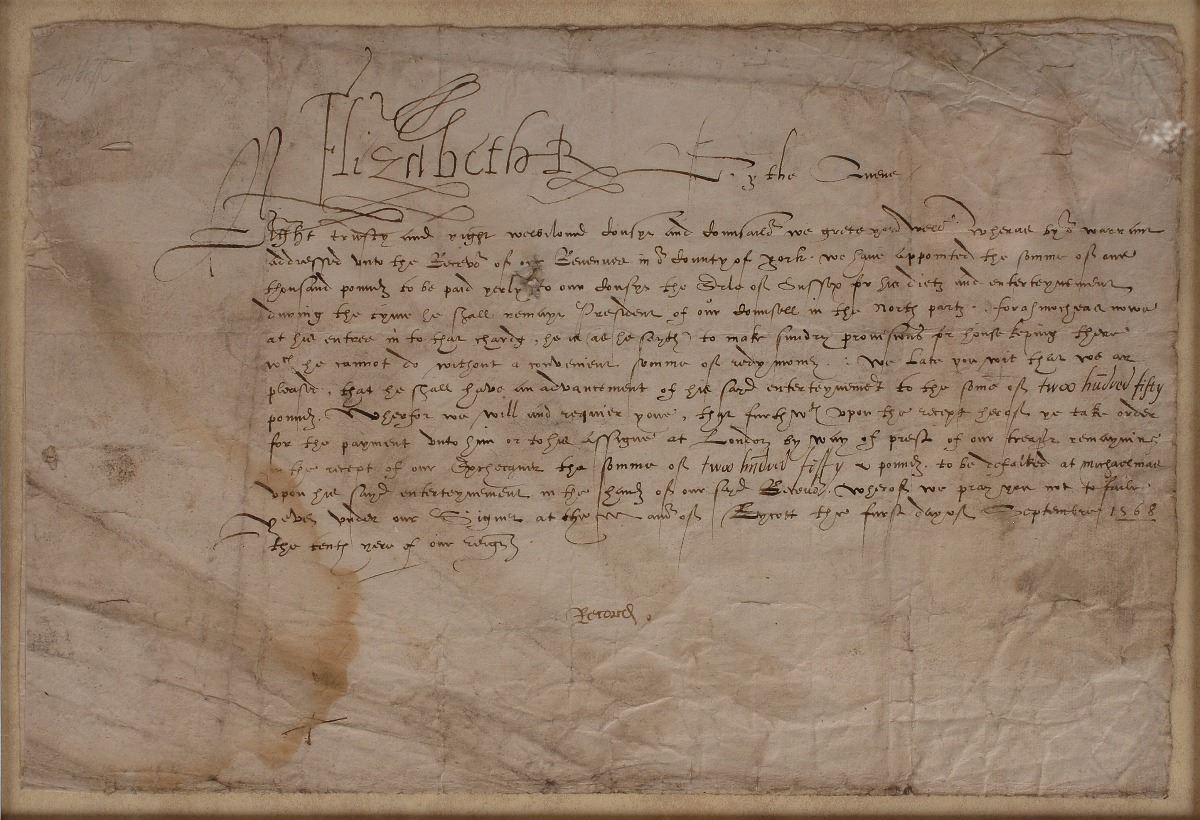 Elizabeth R
By the Quene
Right trusty and right welbiloved Cousyn and Counsailor we grete you well. Wheras by or warraunt
addressed unto the Recevor of our Revenues in or County of York we have appointed the somme of one
thousand poundes to be paid yerly to our Cousyn the Erle of Sussex for his dietz and enterteynement
during the tyme he shall remayn President of our Counsell in the North partz. forasmocheas nowe
at his entree in to that chardg, he is (as he sayth) to make sundry provisions for house keping there
wch he cannot do without a convenient somme of redy money : We late you wit that we ar
pleased, that he shall have an advancement of his sayd enterteynement to the some of twoo hundred fifty
poundes. Wherfor we will and requier youe, that furthwth upon the receipt herof ye take order
for the payment unto him or to his assignes at London by way of prest of our treasr remayning
in the receipt of our Exchequer the somme of twoo hundred fifty poundes to be defalked at Michaelmas
upon his sayd enterteynement in the handes of our sayd Recevor, Wherof we pray you not to faile.
Yeven under our Signet at the mannor of Rycott the first day of Septembre 1568
the tenth yere of our reign
Record